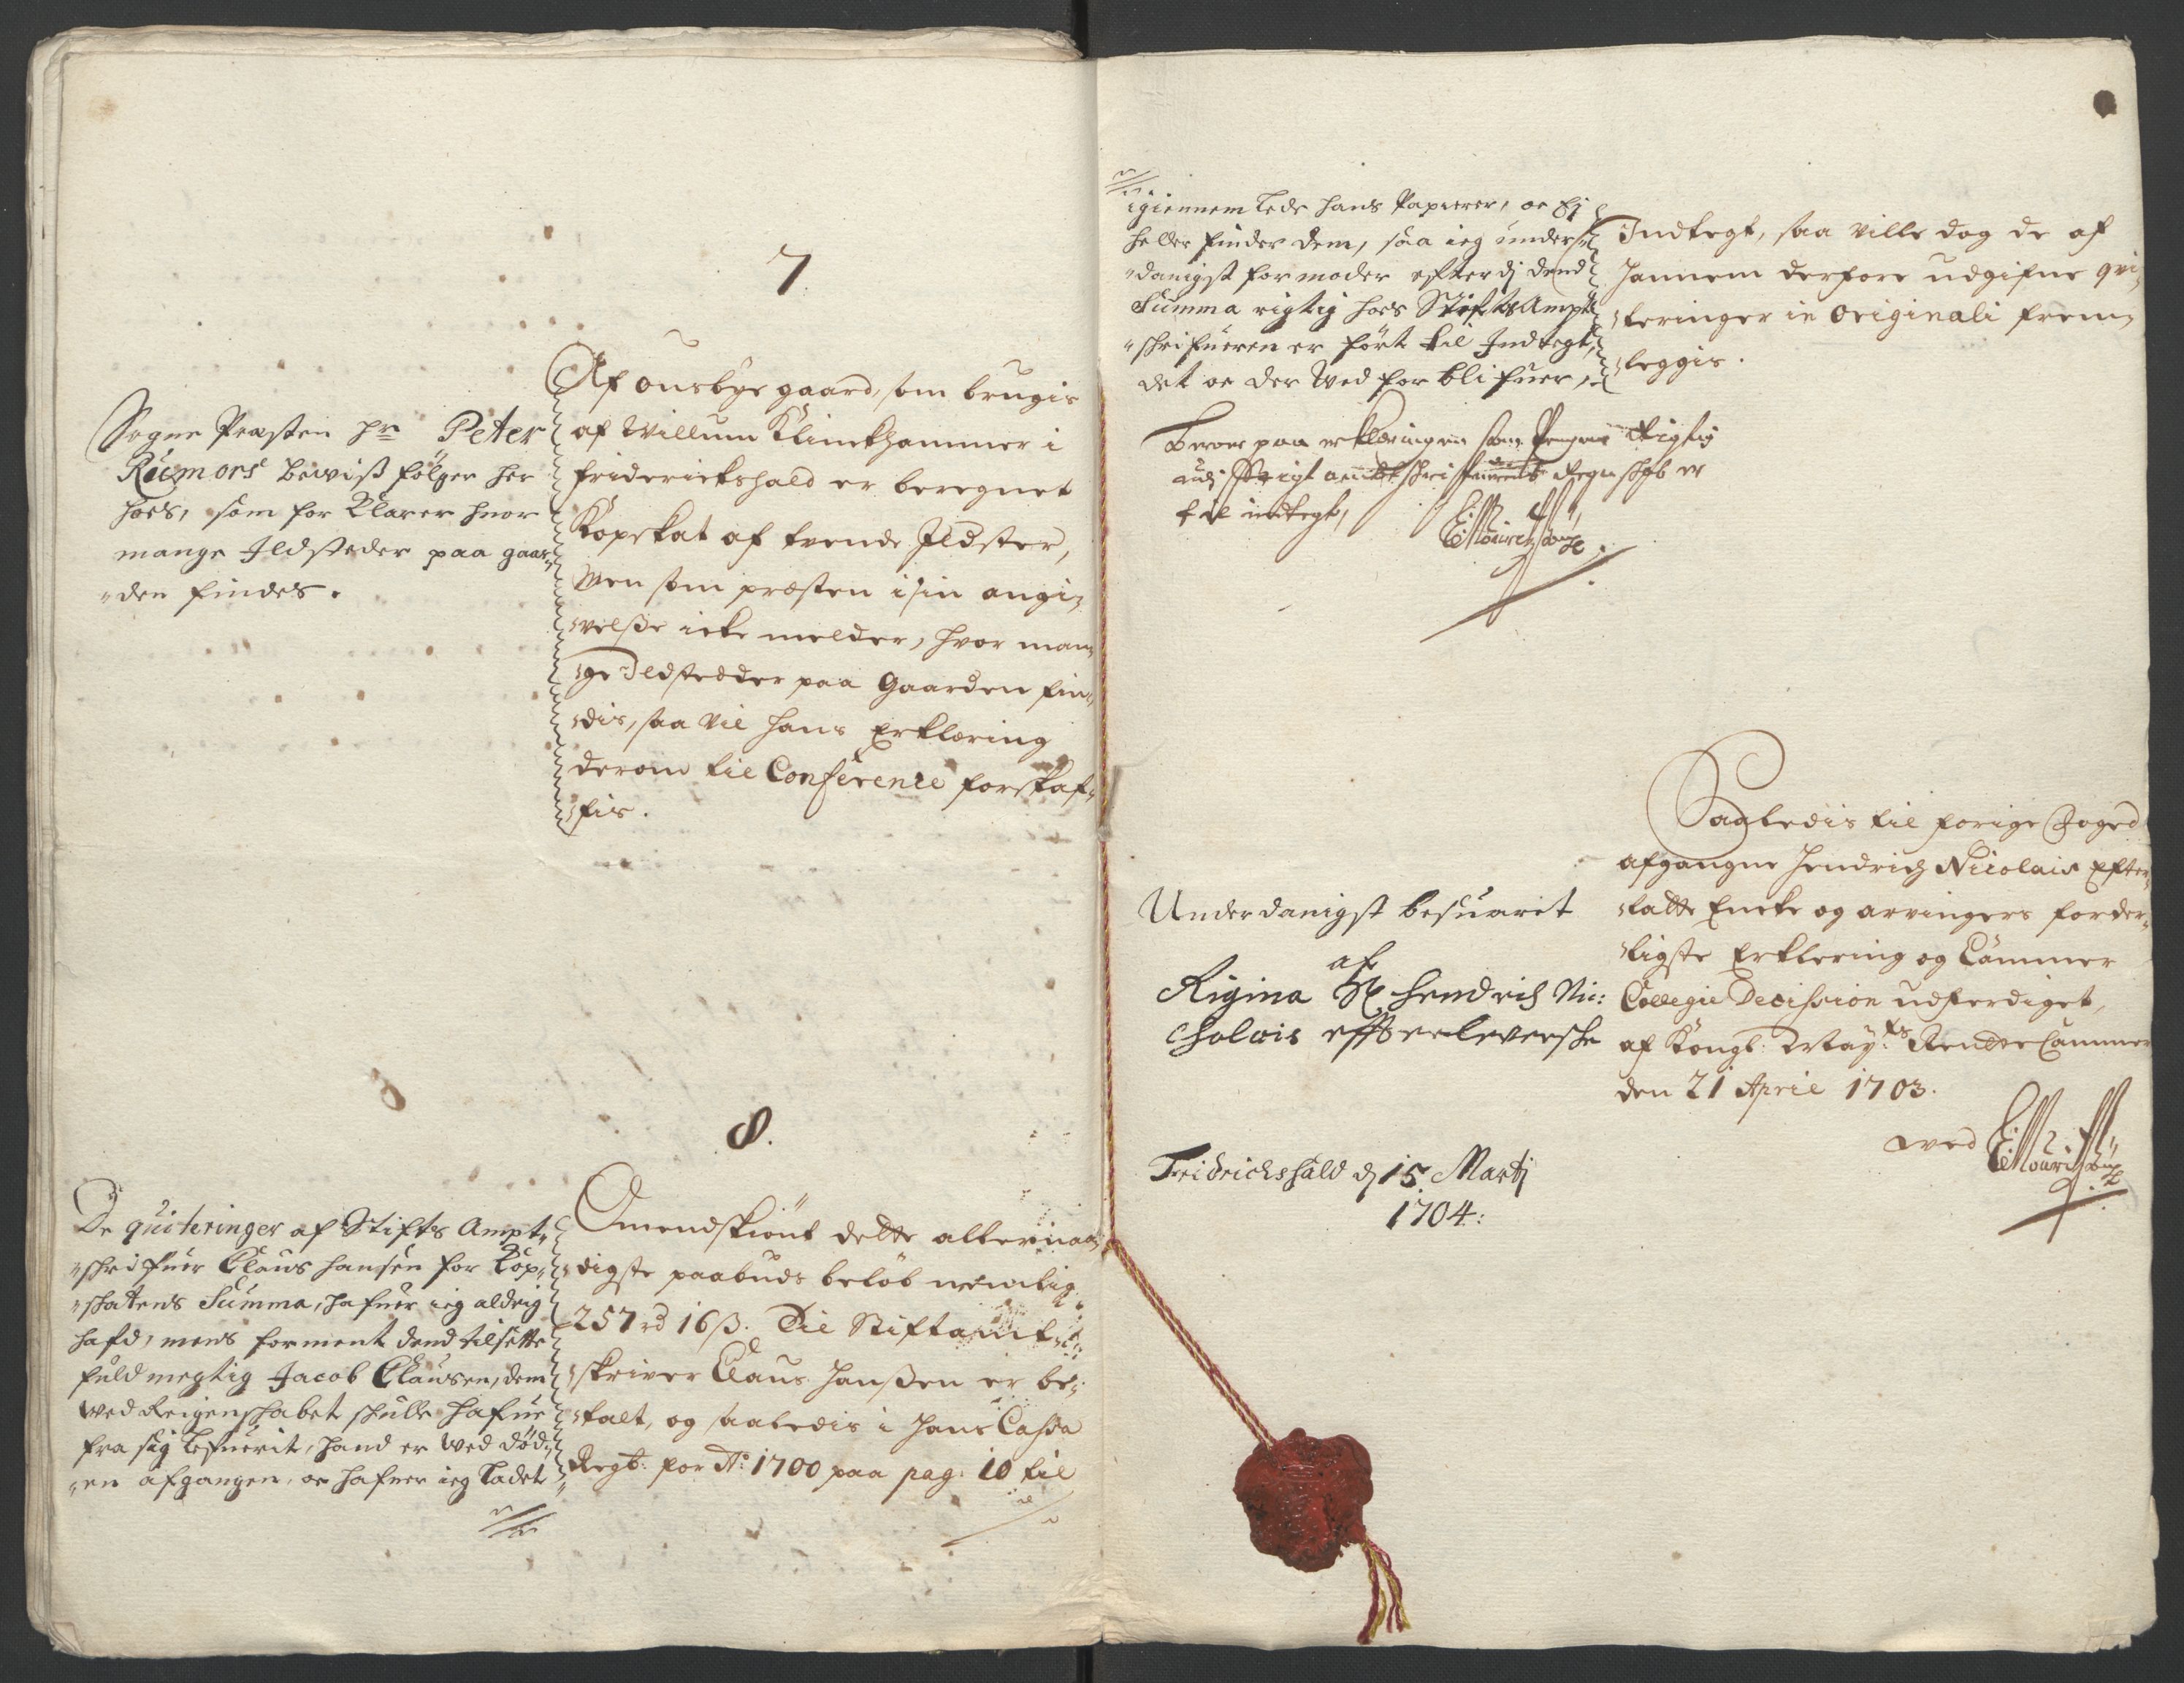 7.
Sogne Præsten hr. Peter
Rümors beviss fölger her
hoes, som for klarer huor
mange Jldsteder paa gaar-
den findes.
Af onsbye gaard, som brugis
af Willum Klinckhammer i
friderickshald er beregnet
Kopskat af tvende Jldster,
Men som præsten i sin angi-
velsse icke melder, hvor man-
ge Jldstedder paa Gaarden fin-
dis, saa vil hans Erklæring
derom til Conference forskaf-
fis.
8.
De quiteringer af Stifts Ampt-
schrifuer Claus Hansen for Kop-
schatens Summa, hafuer ieg aldrig
hafd, mens forment dend tilsatte
fuldmegtig Jacob Clausen, dem
ved Reigenschabet skulle hafue
fra sig lefuerit, hand er ved död-
en afgangen, oc hafuer ieg ladet
Omendskiönt dette allernaa-
digste paabuds belöb nemlig
257 rd 16 ß. Til Stiftamt-
skriver Claus Hanssen er be-
talt, og saaledis i hans Cassa
Regb. for Ao 1700 paa pag: 10 til
igiennem lede hans Papierer, oc Ej
heller finder dem, saa ieg under-
danigst formoder efterdj dend
Summa rigtig hoes StiftsAmpt-
schrifueren er fört til Jndtegt,
det oc der ved for blifuer,
Beroer paa erklæringen som Pengene Rigtig
udj Stigt amtschrifuerens Regnschab er
til indtegt,
Jndtegt, saa ville dog de af
hannem derfore udgifne qvi-
teringer in Originali frem-
leggis.
Underdanigst besuaret
af
Rigina Sl Hendrich Ni:
Cholais effterleversche
Fridrichshald dj 15 Martj
1704:
Saaledis til forige Foged
afgangne Hendrich Nicolais Efter-
ladte Encke og arvingers forder-
ligste Erklering og Cammer
Collegii Decission udferdiget,
af Kongl: May:ts RendteCammer
den 21 April 1703.
ved